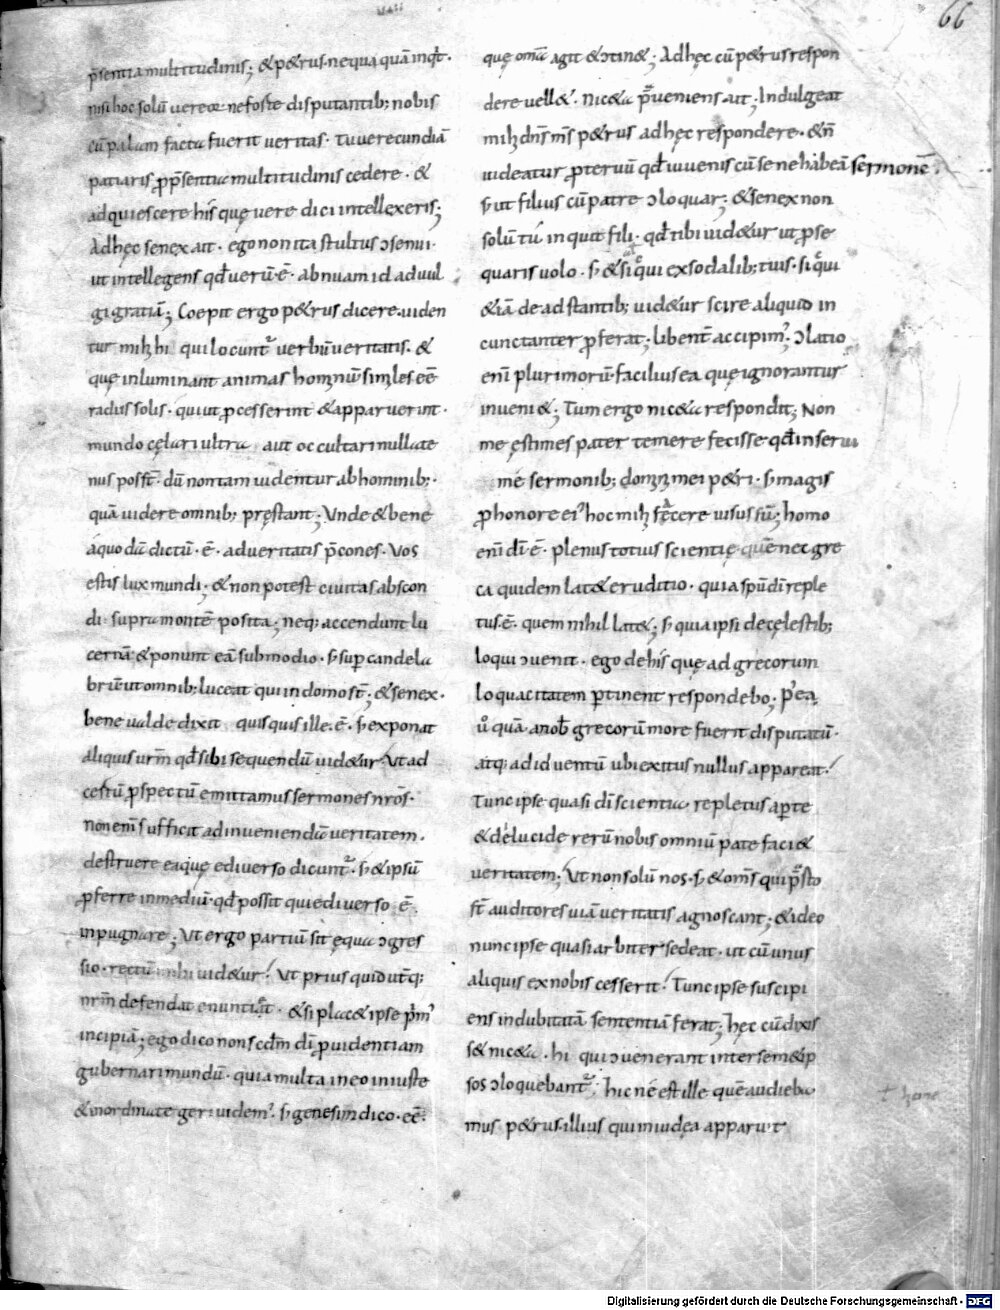 66
p̄sentia multitudinis; & p&rus nequaquā inqd̄.
nisi hoc solū uereor ne foste disputantib; nobis
cū palam facta fuerit ueritas. tu uerecundiā
patiaris ꝓ p̄sentia multitudinis cedere. &
adquiescere his quę uere dici intellexeris;
Ad hęc senex ait. ego non ita stultus ↄsenui.
ut intellegens qd̄ uerū .ē. abnuam id ad uul
gi gratiā; Coepit ergo p&rus dicere. uiden
tur mihi hi qui locunt᷑ uerbū ueritatis. &
quę inluminant animas hominū similes eē
radiis solis. qui ut ꝓcesserint & apparuerint.
mundo cęlari ultra aut occultari nullate
nus posst̄. dū non tam uidentur ab hominib;.
quā uidere omnib; pręstant; Vnde & bene
a quodā dictū .ē. ad ueritatis p̄cones. Vos
estis lux mundi. & non potest ciuitas abscon
di. supra montē posita; neq; accendunt lu
cernā & ponunt eā sub modio. s; sup candela
brū ut omnib; luceat qui in domo st̄; & senex.
bene ualde dixit quisquis ille .ē. s; exponat
aliquis urm̄ qd̄ sibi sequendū uid&ur. Vt ad
certū ꝓspectū emittamus sermones nros̄.
non enī sufficit ad inueniendā ueritatem.
destruere ea quę e diuerso dicunt᷑. s; & ipsū
ꝓferre in mediū. qd̄ possit qui e diuerso .ē.
inpugnare; Vt ergo partiū sit ęqua ↄgres
sio. rectū mihi uid&ur. Vt prius quid utq;
nrm̄ defendat enuntiet. & si plac& ipse prim᷒
incipiā; ego dico non scdm̄ dī ꝓuidentiam
gubernari mundū. quia multa in eo iniuste
& inordinate geri uidem᷒. s; genesim dico. eē
quę omā agit & ↄtin&; Ad hęc cū p&rus respon
dere uell&. nic&a p̄ueniens ait; Indulgeat
mihi dn̄s ms̄ p&rus ad hęc respondere. & n̄
uideatur ꝓteruū qd̄ iuuenis cū sene habeā sermonē.
s; ut filius cū patre ↄloquar; & senex non
solū tu inquit fili. qd̄ tibi uid&ur ut ꝓse
quaris uolo. s; & si qui ex sodalib; tuis. si qui
& iā de adstantib; uid&ur scire aliquid in
cunctanter ꝓferat; libent̄ accipim᷒. ↄlatio
enī plurimorū facilius ea quę ignorantur
inueni&; Tum ergo nic&a respondit; Non
me ęstimes pater temere fecisse qd̄ inserui
me sermonib; domini mei p&ri. s; magis
ꝓ honore ei᷒ hoc mihi fecere uisus sū; homo
enī dī .ē. plenus totius scientię quē nec gre
ca quidem lat& eruditio. quia spū dī reple
tus .ē. quem nihil lat&; s; quia ipsi de cęlestib;
loqui ↄuenit. ego de his quę ad grecorum
loquacitatem ꝑtinent respondebo. p̄ ea
u̇ quā a nob̄ grecorū more fuerit disputatū.
atq; ad id uentū ubi exitus nullus appareat.
Tunc ipse quasi dī scientia repletus aꝑte
& delucide rerū nobis omniū patefaci&
ueritatem; Vt non solū nos. s; & oms̄ qui p̄sto
st̄ auditores uiā ueritatis agnoscant; & ideo
nunc ipse quasi arbiter sedeat. ut cū unus
aliquis ex nobis cesserit. Tunc ipse suscipi
ens indubitatā sententiā ferat; hęc cū dixis
s& nic&a. hi qui ↄuenerant inter sem&ip
sos ↄloquebant᷑; hicne est ille quē audieba
mus p&rus. illius qui in iudęa apparuit
Digitalisierung gefördert durch die Deutsche Forschungsgemeinschaft - DFG